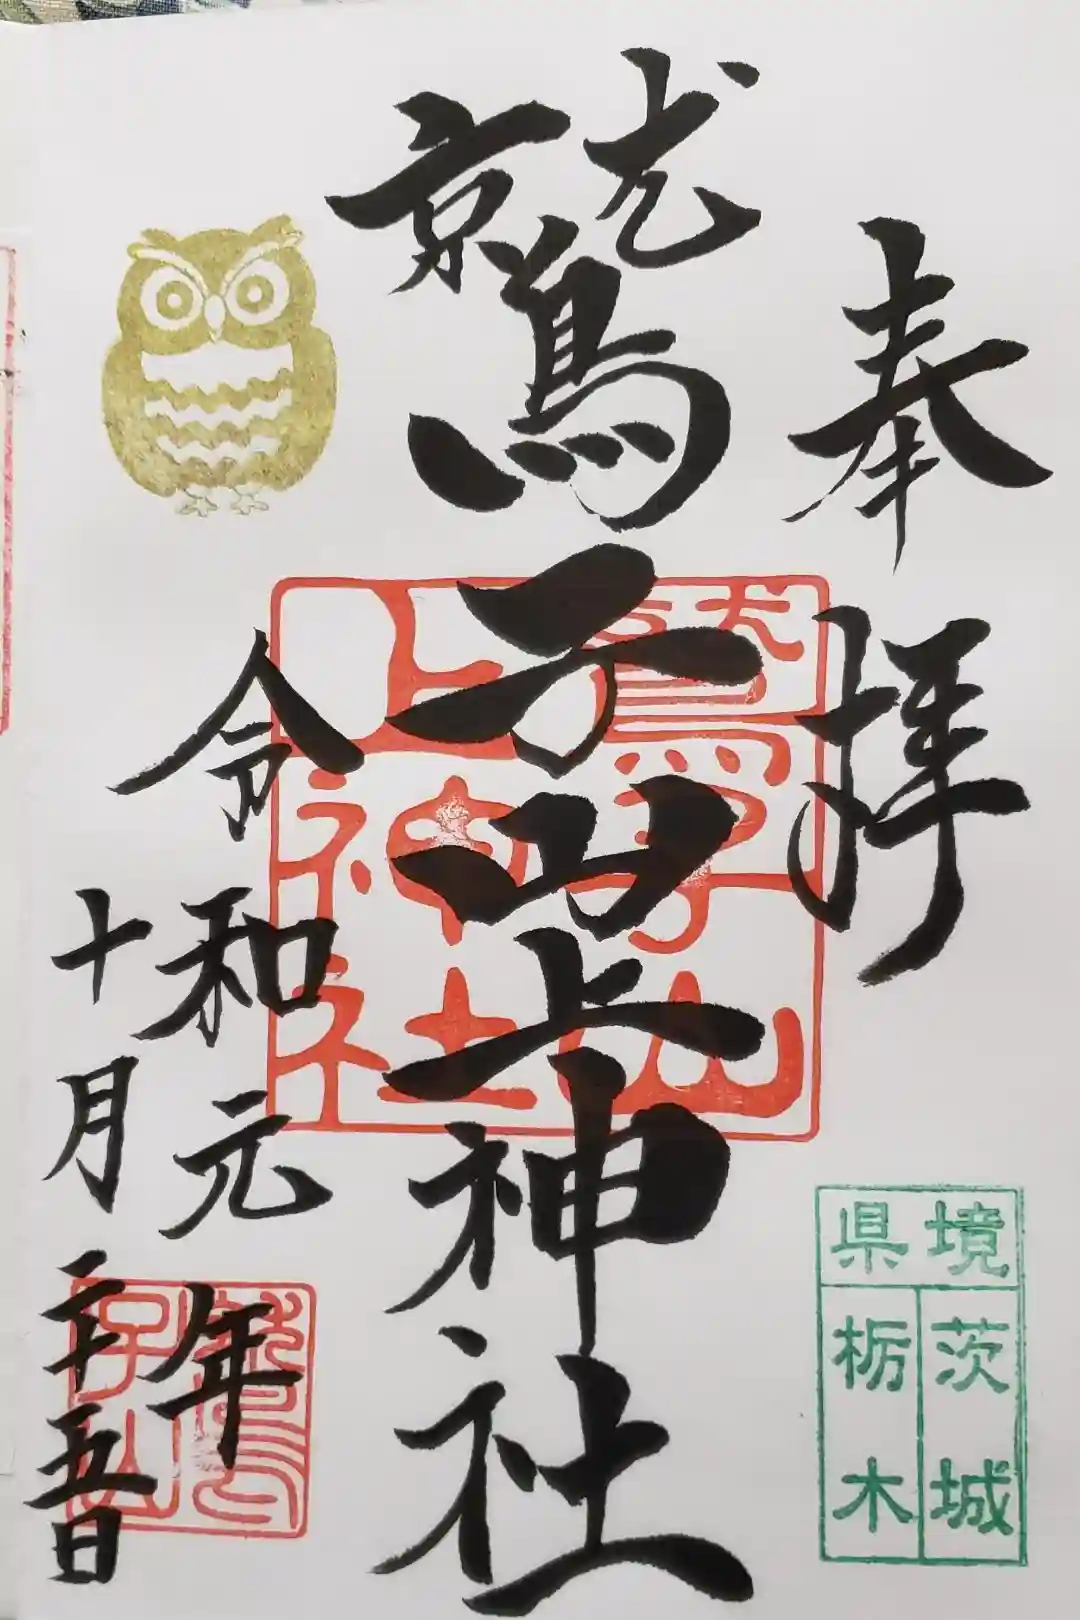 奉拝
鷲子山上神社
令和元年
十月二十五日
鷲子山
上神社
鷲
子山
県境
茨城
栃木